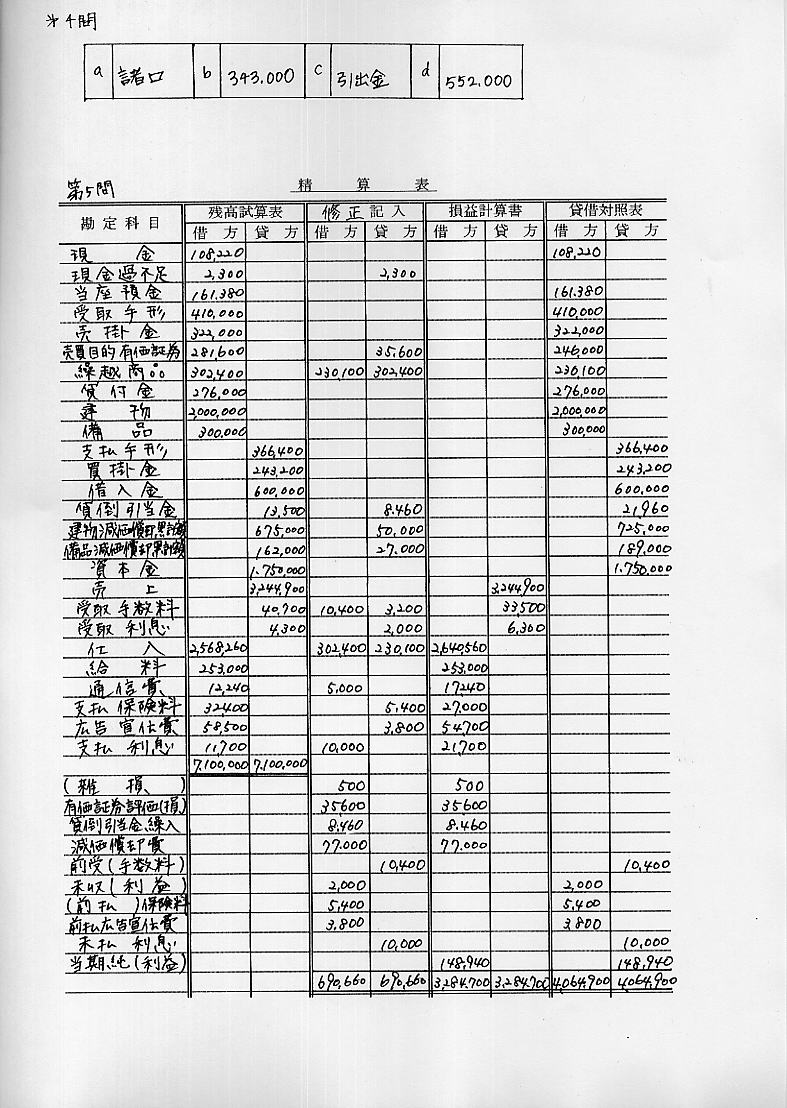 第4問
a 諸口 b 343,000 c 引出金 d 552,000
第5問
精 算 表
勘定科目 残高試算表 修正記入 損益計算書 貸借対照表
借方 貸方 借方 貸方 借方 貸方 借方 貸方
現金 108,220 108,220
現金過不足 2,300 2,300
当座預金 161.380 161.380
受取手形 410,000 410,000
売掛金 322,000 322,000
売買目的有価証券 281,600 35,600 246,000
繰越商品 302,400 230,100 302,400 230,100
貸付金 276,000 276,000
建物 2,000,000 2,000,000
備品 300,000 300,000
支払手形 366,400 366,400
買掛金 243,200 243,200
借入金 600,000 600,000
貸倒引当金 13,500 8.460 21,960
建物減価償却累計額 675,000 50,000 725,000
備品減価償却累計額 162,000 27,000 189,000
資本金 1.750,000 1.750,000
売上 3,244,900 3,244,900
受取手数料 40,700 10,400 3,200 33500
受取利息 4,300 2,000 6,300
仕入 2,568,260 302,400 230,100 2,640,560
給料 253,000 253,000
通信費 12,240 5,000 17240
支払保険料 32400 5,400 27,000
広告宣伝費 58,500 3,800 54,700
支払利息 11,700 10,000 21,700
7,100,000 7,100,000
(雑損) 500 500
有価証券評価(損) 35600 35600
貸倒引当金繰入 8,460 8.460
減価償却費 77.000 77.000
前受(手数料) 10,400 10,400
未収(利益) 2,000 2,000
(前払)保険料 5,400 5,400
前払広告宣伝費 3,800 3,800
未払利息 10,000 10,000
当期純(利益) 148,940 148,940
690,660 690,660 3,284,700 3,284,700 4,064,900 4,064,900